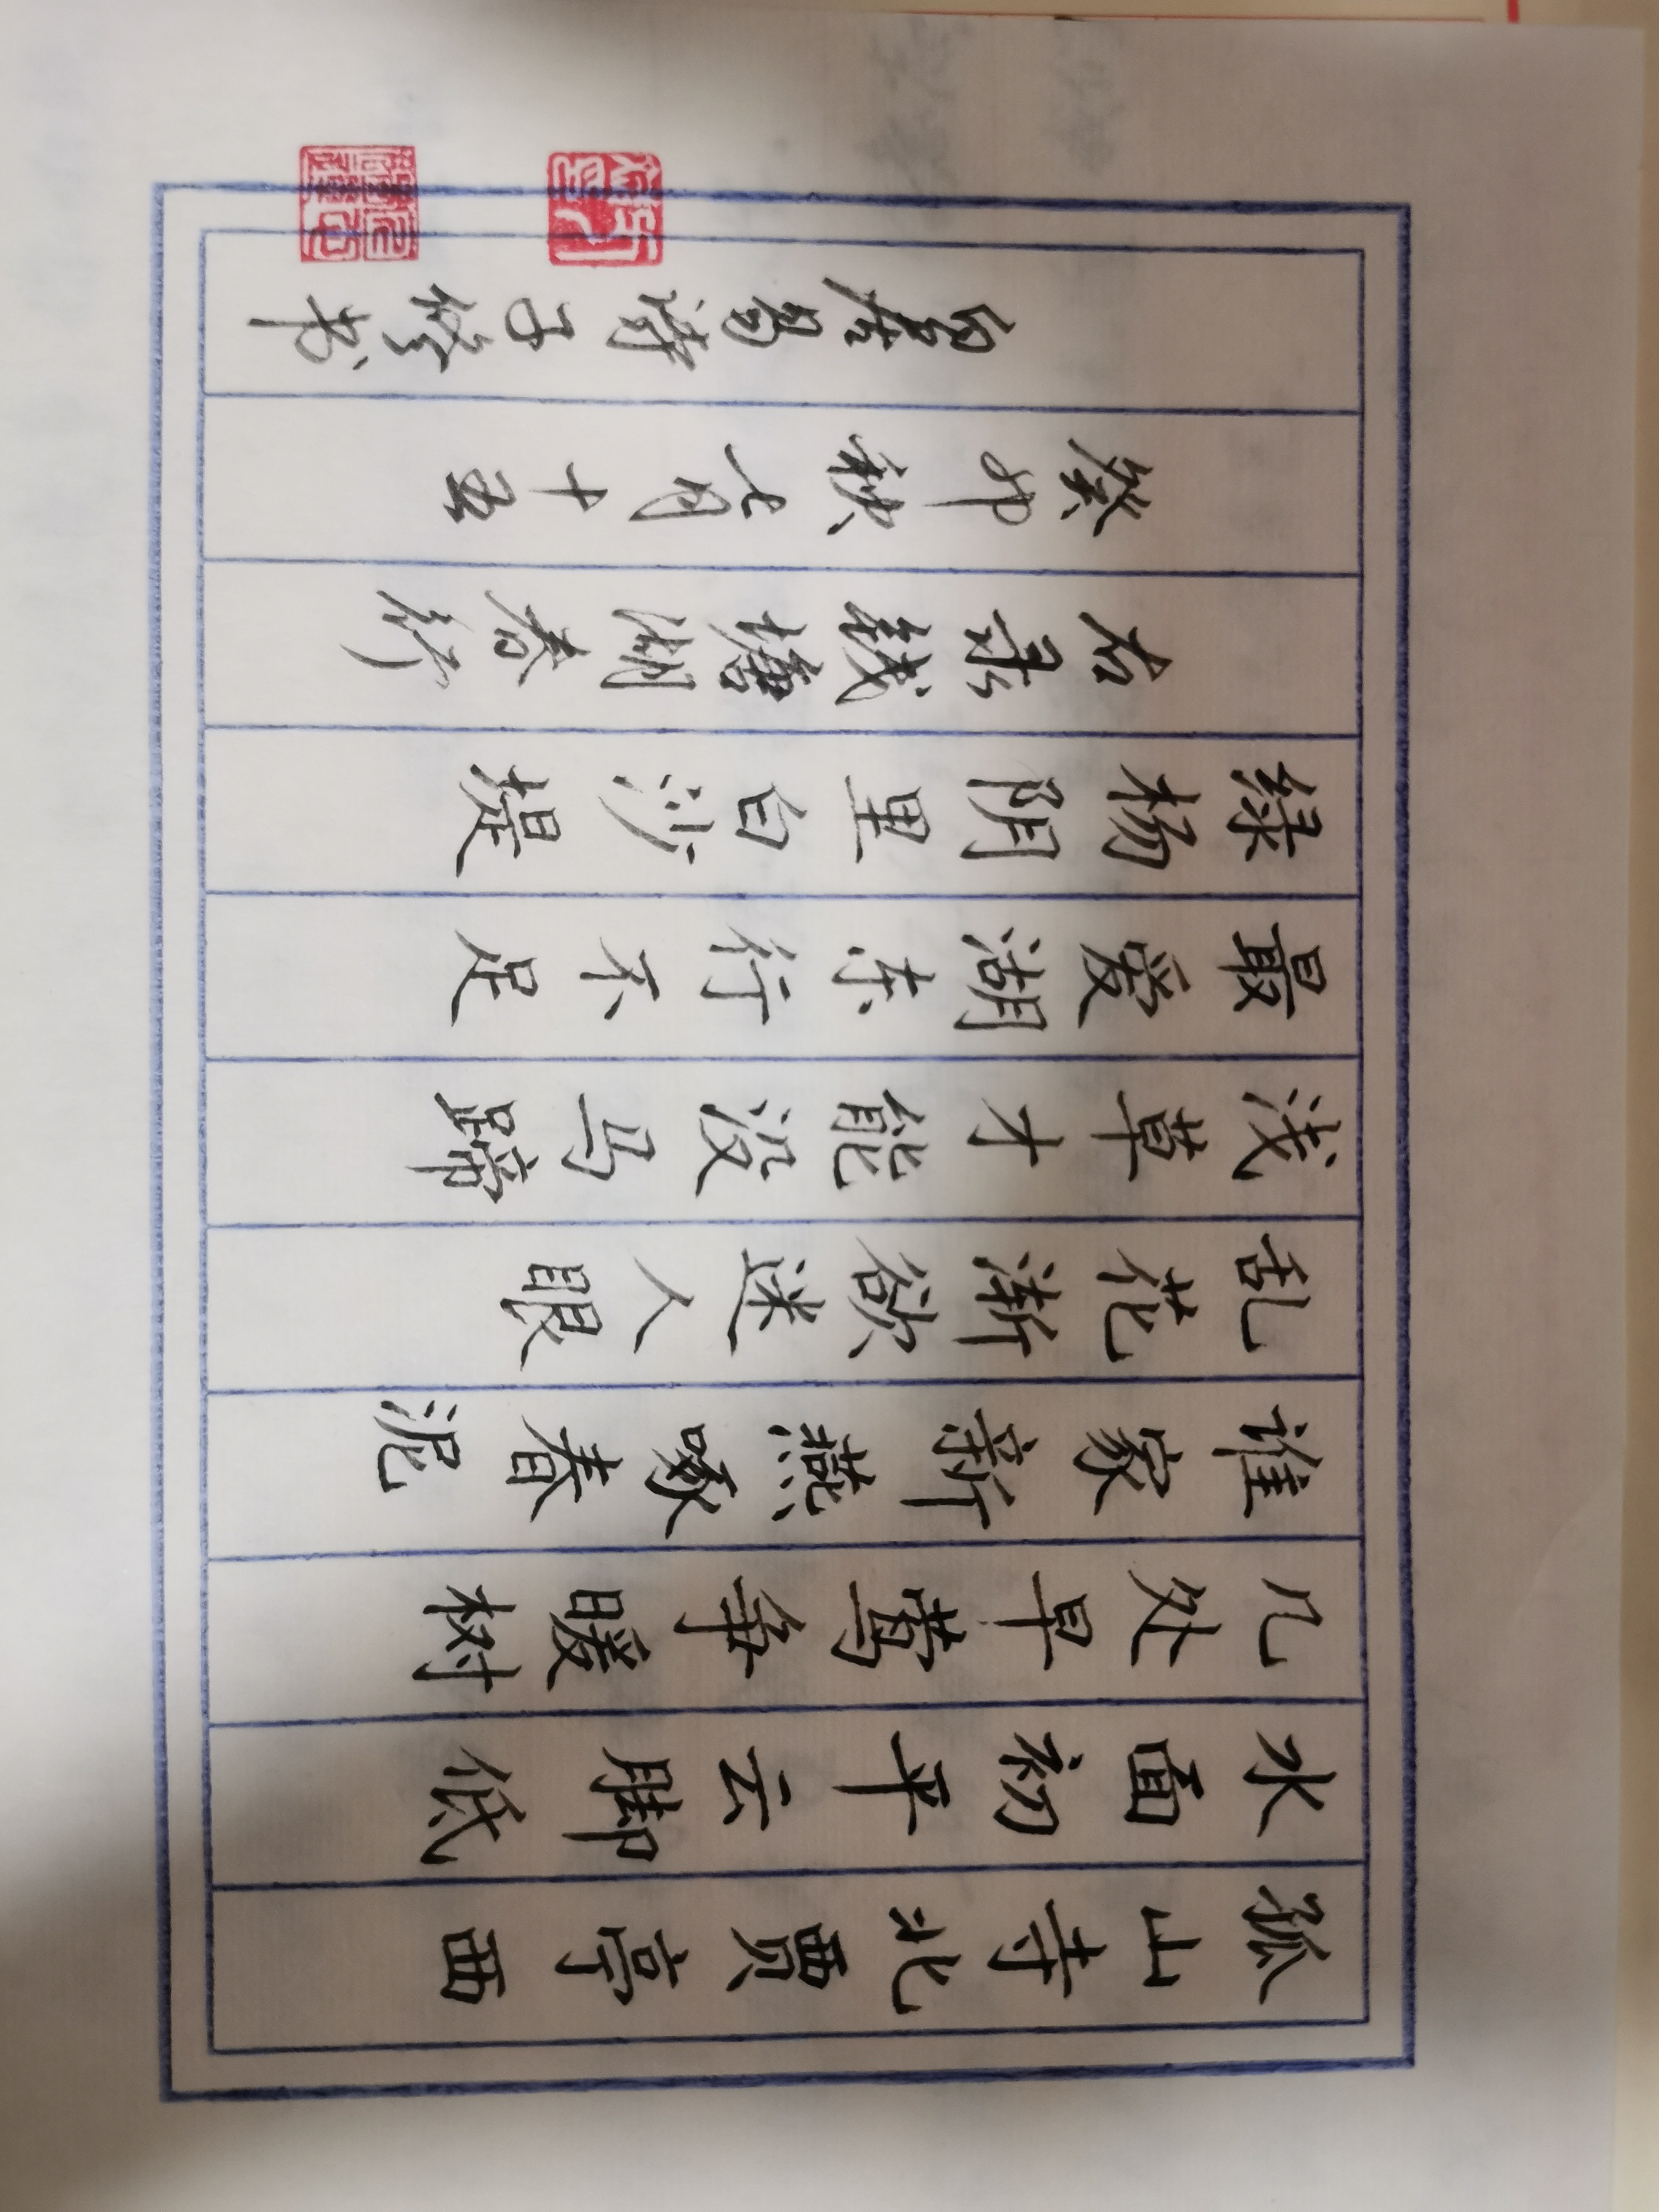 孤山寺北贾亭西
水面初平云脚低
几处早莺争暖树
谁家新燕啄春泥
乱花渐欲迷人眼
浅草才能没马蹄
最爱湖东行不足
绿杨阴里白沙堤
右录钱塘湖春行
癸卯秋七月十五
白居易诗子修书